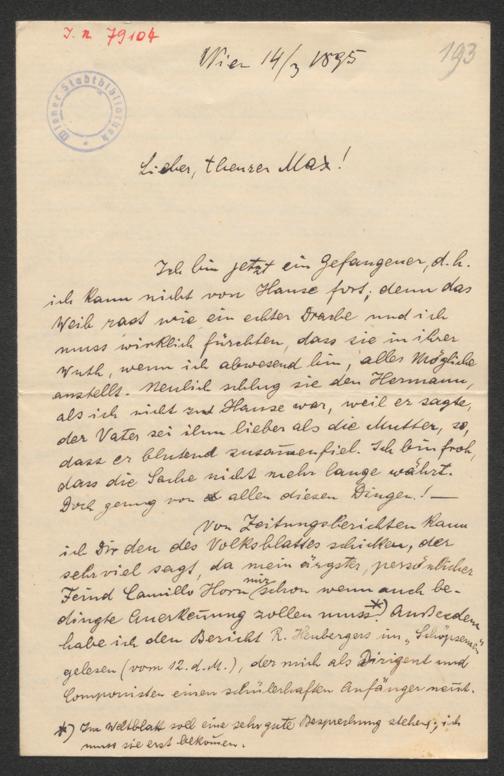 I. n. 79104
193
Wiener Stadtbibliothek
Wien 14/3 1895
Lieber, theurer Max!
Ich bin jetzt ein Gefangener, d. h.
ich kann nicht von Hause fort; denn das
Weib rast wie ein echter Drache und ich
muss wirklich fürchten, dass sie in ihrer
Wuth, wenn ich abwesend bin, alles Mögliche
anstellt. Neulich schlug sie den Hermann,
als ich nicht zu Hause war, weil er sagte,
der Vater sei ihm lieber als die Mutter, so,
dass er blutend zusammenfiel. Ich bin froh,
dass die Sache nicht mehr lange währt.
Doch genug von allen diesen Dingen! —
Von Zeitungsberichten kann
ich Dir den des Volksblattes schicken, der
sehr viel sagt, da mein ärgster, persönlicher
Feind Camillo Horn mir schon wenn auch be-
dingte Anerkennung zollen muss*). Außerdem
habe ich den Bericht R. Heubergers im
gelesen (vom 12. d. M.), der mich als Dirigent und
Componisten einen schülerhaften Anfänger nennt.
*) Im Weltblatt soll eine sehr gute Besprechung stehen; ich
muss sie erst bekommen.